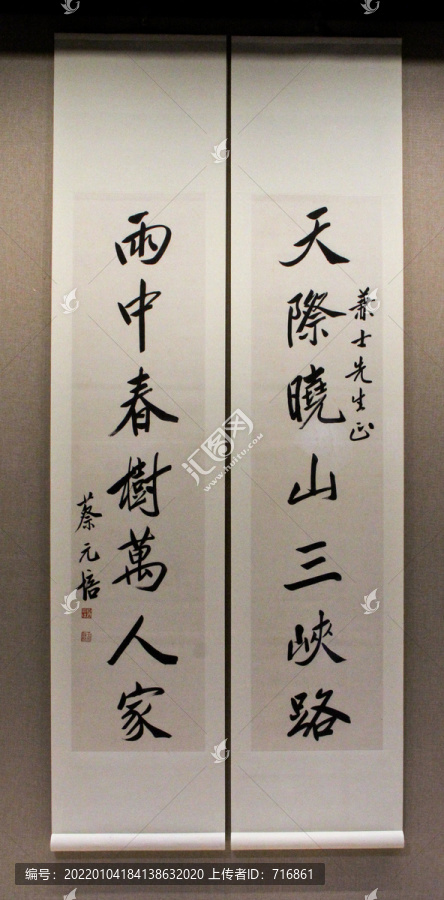 天際曉山三峽路
義士先生正
雨中春樹萬人家
蔡元培
汇图网
www.huitu.com
编号：20220104184138632020 上传者ID：716861